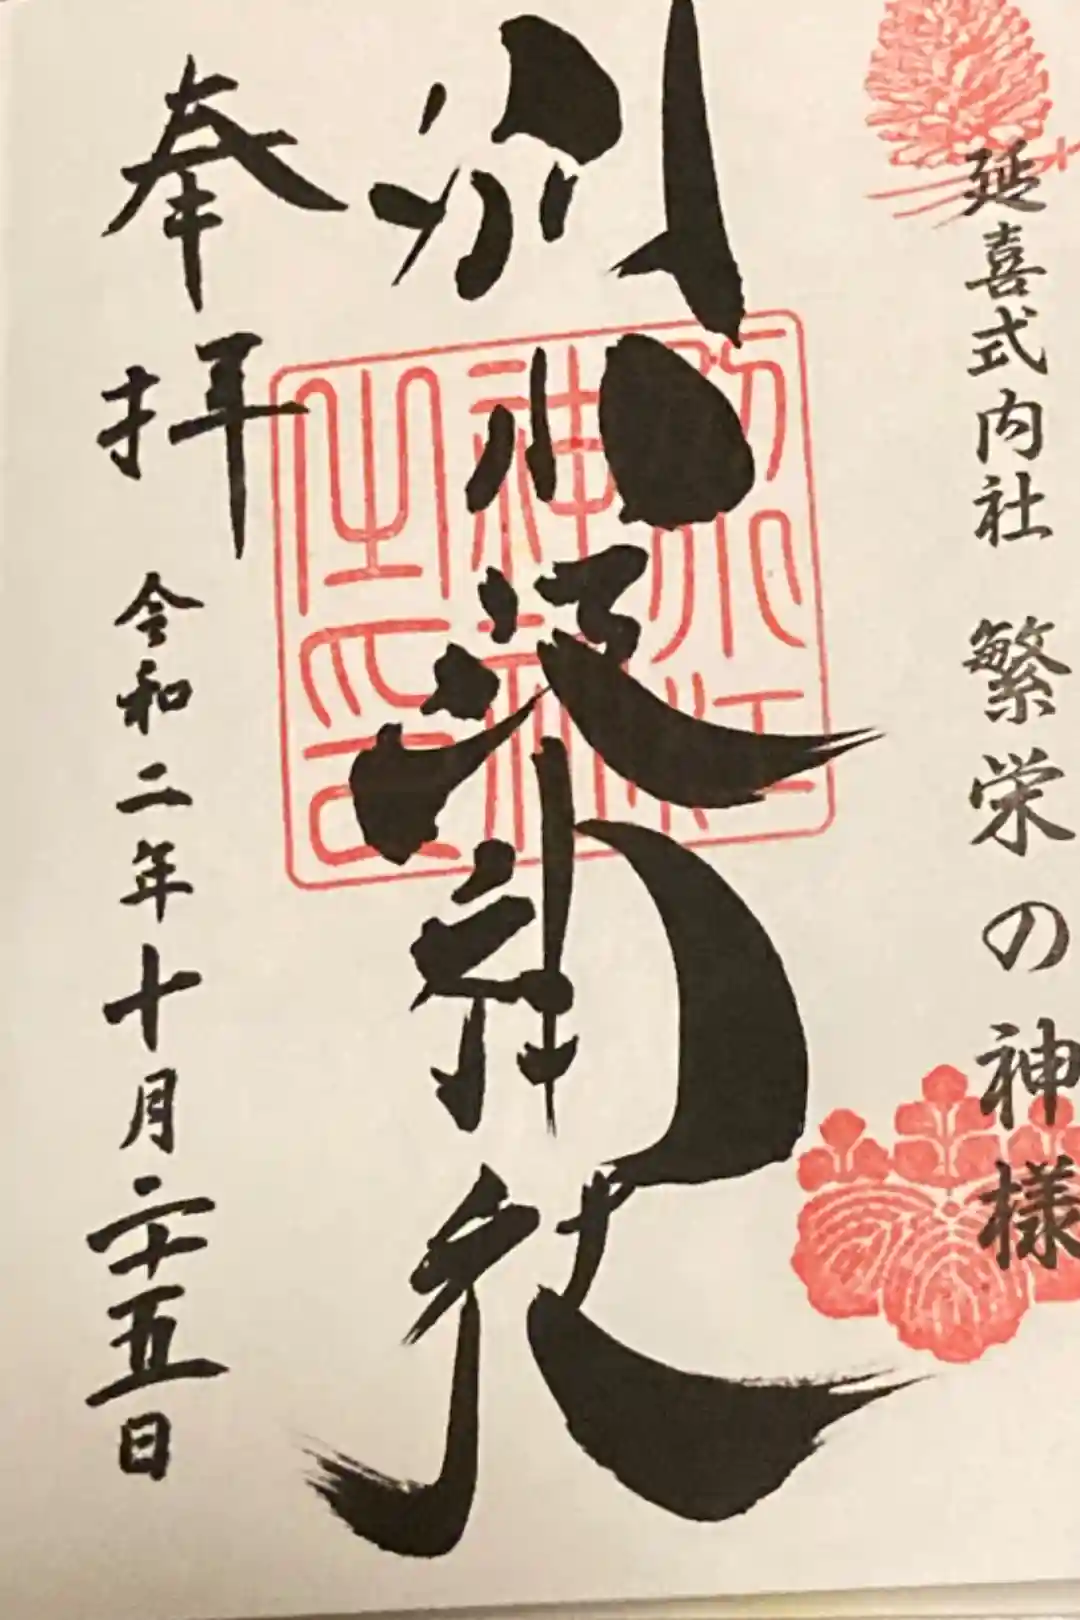 延喜式内社 繁栄の神様
別小江神社
別小江
神社
之印
奉拝 令和二年十月二十五日